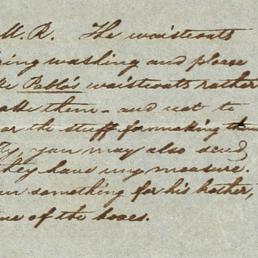 M. R. The waistcoats
ing washing and please
Pablo's waistcoats rather
them - and not to
or the stuff for making them
you may also send
they have my measure.
something for his brother,
ne of the boxes.